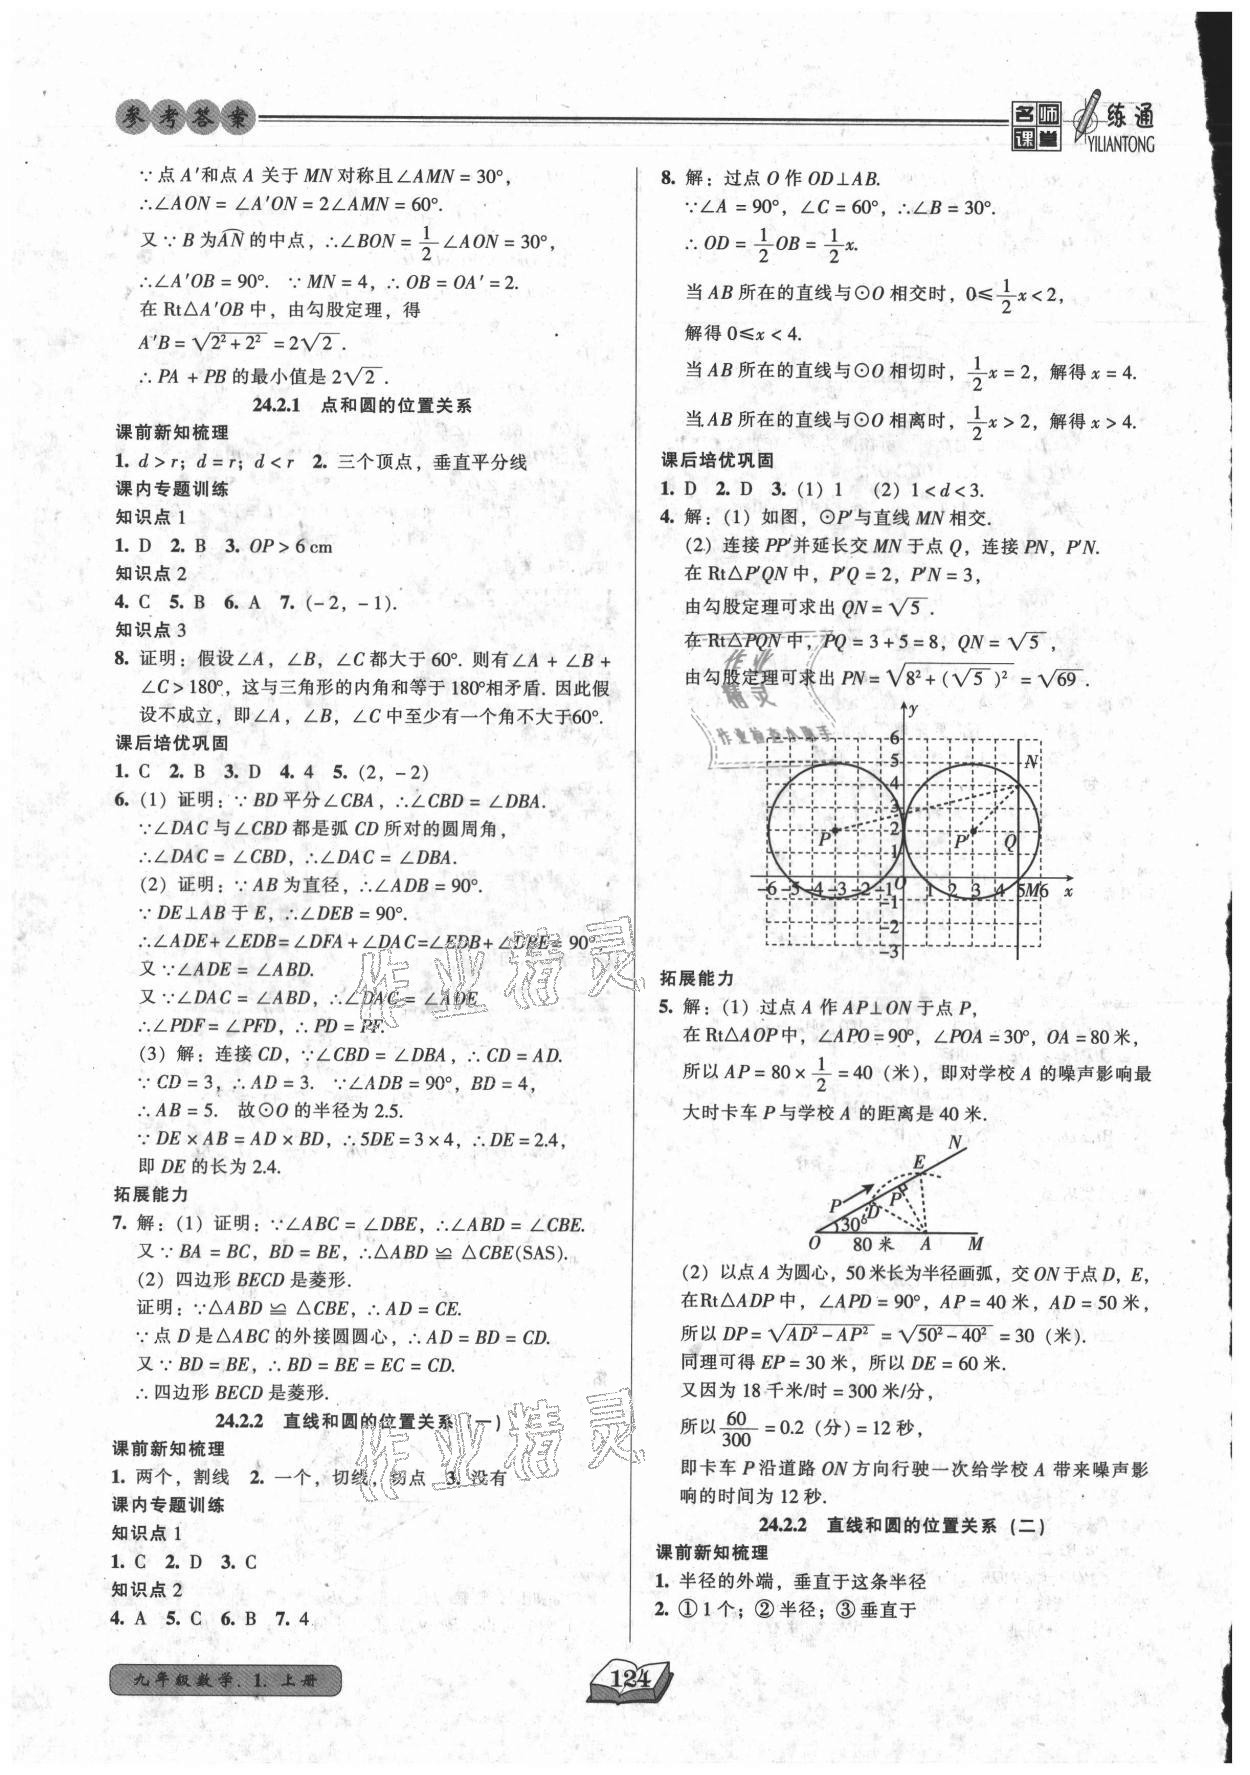 参考答案
名师课堂 一练通
YILIANTONG
∵点 A′和点 A 关于 MN 对称且∠AMN = 30°,
∴∠AON = ∠A′ON = 2∠AMN = 60°.
又∵ B 为AN⌢ 的中点，∴∠BON = 1/2 ∠AON = 30°,
∴∠A′OB = 90°. ∵ MN = 4, ∴ OB = OA′ = 2.
在 Rt△A′OB 中，由勾股定理，得
A′B = √(2²+2²) = 2√2 .
∴ PA + PB 的最小值是 2√2 .
24.2.1 点和圆的位置关系
课前新知梳理
1. d > r; d = r; d < r 2. 三个顶点，垂直平分线
课内专题训练
知识点 1
1. D 2. B 3. OP > 6 cm
知识点 2
4. C 5. B 6. A 7. (-2, -1).
知识点 3
8. 证明：假设∠A，∠B，∠C 都大于 60°. 则有∠A + ∠B +
∠C > 180°，这与三角形的内角和等于 180°相矛盾. 因此假
设不成立，即∠A，∠B，∠C 中至少有一个角不大于60°.
课后培优巩固
1. C 2. B 3. D 4. 4 5. (2, -2)
6. (1) 证明：∵ BD 平分∠CBA，∴∠CBD = ∠DBA.
∵∠DAC 与∠CBD 都是弧 CD 所对的圆周角，
∴∠DAC = ∠CBD, ∴∠DAC = ∠DBA.
(2) 证明：∵ AB 为直径，∴∠ADB = 90°.
∵ DE⊥AB 于 E, ∴∠DEB = 90°.
∴∠ADE + ∠EDB = ∠DFA + ∠DAC = ∠EDB + ∠DBE = 90°
又∵∠ADE = ∠ABD.
又∵∠DAC = ∠ABD, ∴∠DAC = ∠ADE
∴∠PDF = ∠PFD, ∴ PD = PF.
(3) 解：连接 CD, ∵∠CBD = ∠DBA, ∴ CD = AD.
∵ CD = 3, ∴ AD = 3. ∵∠ADB = 90°, BD = 4,
∴ AB = 5. 故⊙O 的半径为 2.5.
∵ DE × AB = AD × BD, ∴ 5DE = 3 × 4, ∴ DE = 2.4,
即 DE 的长为 2.4.
拓展能力
7. 解：(1) 证明：∵∠ABC = ∠DBE, ∴∠ABD = ∠CBE.
又∵ BA = BC, BD = BE, ∴△ABD ≌ △CBE(SAS).
(2) 四边形 BECD 是菱形.
证明：∵△ABD ≌ △CBE, ∴ AD = CE.
∵点 D 是△ABC 的外接圆圆心，∴ AD = BD = CD.
又∵ BD = BE, ∴ BD = BE = EC = CD.
∴四边形 BECD 是菱形.
24.2.2 直线和圆的位置关系 (一)
课前新知梳理
1. 两个，割线 2. 一个，切线，切点 3. 没有
课内专题训练
知识点 1
1. C 2. D 3. C
知识点 2
4. A 5. C 6. B 7. 4
8. 解：过点 O 作 OD⊥AB.
∵∠A = 90°，∠C = 60°，∴∠B = 30°.
∴ OD = 1/2 OB = 1/2 x.
当 AB 所在的直线与⊙O 相交时，0≤ 1/2 x < 2,
解得 0≤x < 4.
当 AB 所在的直线与⊙O 相切时，1/2 x = 2，解得 x = 4.
当 AB 所在的直线与⊙O 相离时，1/2 x > 2，解得 x > 4.
课后培优巩固
1. D 2. D 3. (1) 1 (2) 1 < d < 3.
4. 解：(1) 如图，⊙P′与直线 MN 相交.
(2) 连接 PP′并延长交 MN 于点 Q，连接 PN，P′N.
在 Rt△P′QN 中，P′Q = 2，P′N = 3,
由勾股定理可求出 QN = √5 .
在 Rt△PQN 中，PQ = 3 + 5 = 8，QN = √5 ,
由勾股定理可求出 PN = √(8²+(√5)²) = √69 .
y
6
5
4
3
2
1
N
P P′ Q
-6 -5 -4 -3 -2 -1 O 1 2 3 4 5 M 6 x
-1
-2
-3
拓展能力
5. 解：(1) 过点 A 作 AP⊥ON 于点 P,
在 Rt△AOP 中，∠APO = 90°，∠POA = 30°，OA = 80 米，
所以 AP = 80 × 1/2 = 40 (米)，即对学校 A 的噪声影响最
大时卡车 P 与学校 A 的距离是 40 米.
N
E
P D P
30°
O 80 米 A M
(2) 以点 A 为圆心，50 米长为半径画弧，交 ON 于点 D，E，
在Rt△ADP 中，∠APD = 90°，AP = 40 米，AD = 50 米，
所以 DP = √(AD²-AP²) = √(50²-40²) = 30 (米).
同理可得 EP = 30 米，所以 DE = 60 米.
又因为 18 千米/时 = 300 米/分，
所以 60/300 = 0.2 (分) = 12 秒，
即卡车 P 沿道路 ON 方向行驶一次给学校 A 带来噪声影
响的时间为 12 秒.
24.2.2 直线和圆的位置关系 (二)
课前新知梳理
1. 半径的外端，垂直于这条半径
2. ①1 个；②半径；③垂直于
作业精灵
作业检查小助手
作业精灵
作业精灵
九年级数学. 1. 上册
124